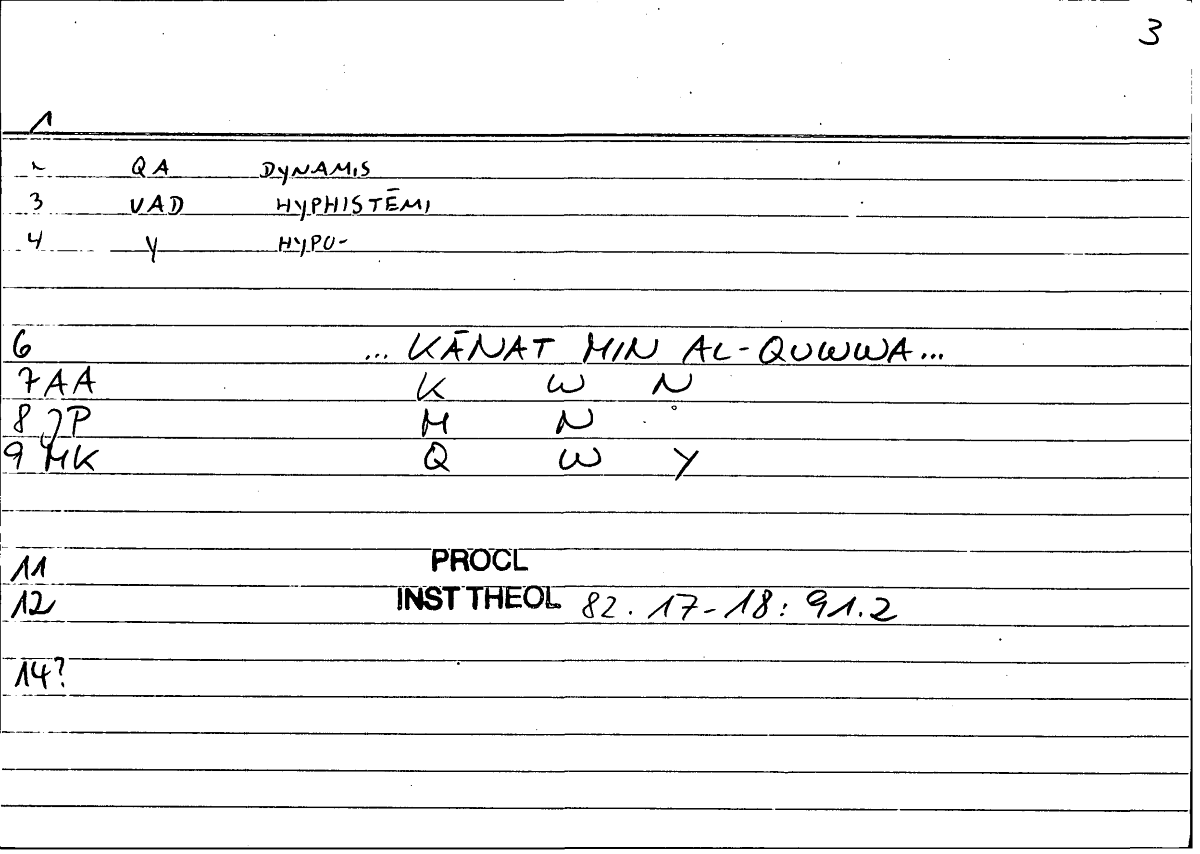 3
1
2 QA DYNAMIS
3 VAD HYPHISTĒMI
4 Y HYPO-
6 ... KĀNAT MIN AL-QUWWA...
7 AA K W N
8 JP M N
9 MK Q W Y
11 PROCL
12 INST THEOL 82.17-18: 91.2
14?